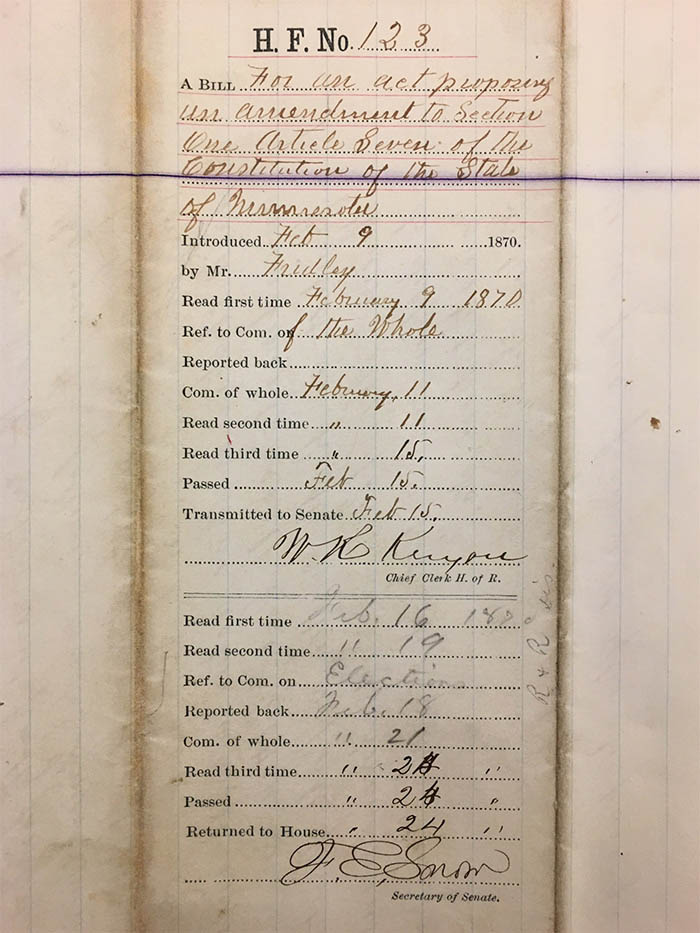 H. F. No. 123
A BILL For an act proposing
an amendment to Section
One Article Seven of the
Constitution of the State
of Minnesota
Introduced Feb 9 1870.
by Mr. Fridley
Read first time February 9 1870
Ref. to Com. on of the Whole
Reported back
Com. of whole February 11
Read second time " 11
Read third time " 15.
Passed Feb 15.
Transmitted to Senate Feb 15.
W. R. Kenyon
Chief Clerk H. of R.
Read first time Feb. 16 1870
Read second time " 19
Ref. to Com. on Elections
Reported back Feb. 18
Com. of whole " 21
Read third time " 24 "
Passed " 24 "
Returned to House " 24 "
F. E. Snow
Secretary of Senate.